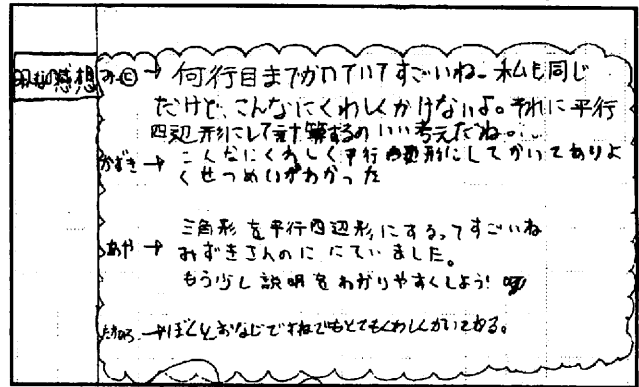 感想
→ 何行目までかいていてすごいね。私も同じ
だけど、こんなにくわしくかけないよ。それに平行
四辺形にして計算するの いい考えだね。
かずき→ こんなにくわしく平行四辺形にしてかいてありよ
くせつめいがわかった
あや → 三角形を平行四辺形にするってすごいね
みずきさんのに にていました。
もう少し説明をわかりやすくしよう!
→ぼくとおなじですねでもとてもくわしくかいてある。